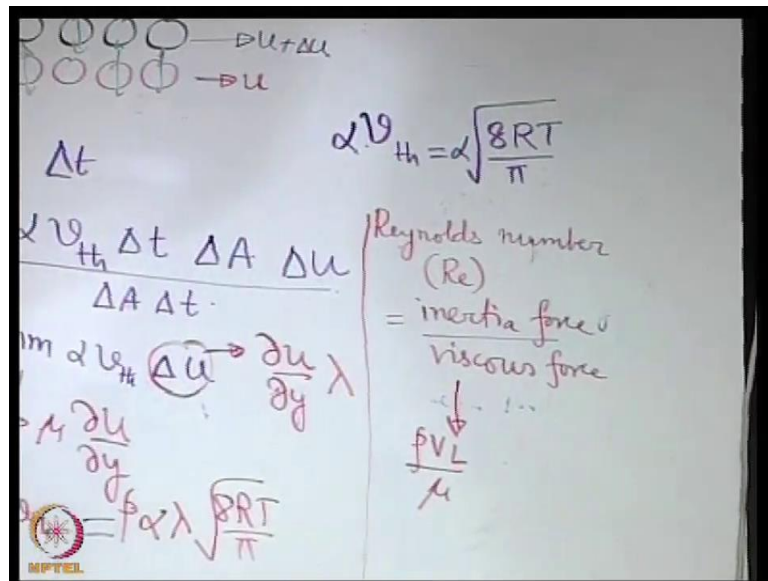 → u+Δu
→ u
Δt
α v_th = α √(8RT/π)
α v_th Δt ΔA Δu
ΔA Δt
α v_th Δu → ∂u/∂y λ
μ ∂u/∂y
= ρ α λ √(8RT/π)
Reynolds number
(Re)
= inertia force
viscous force
↓
ρVL
μ
NPTEL